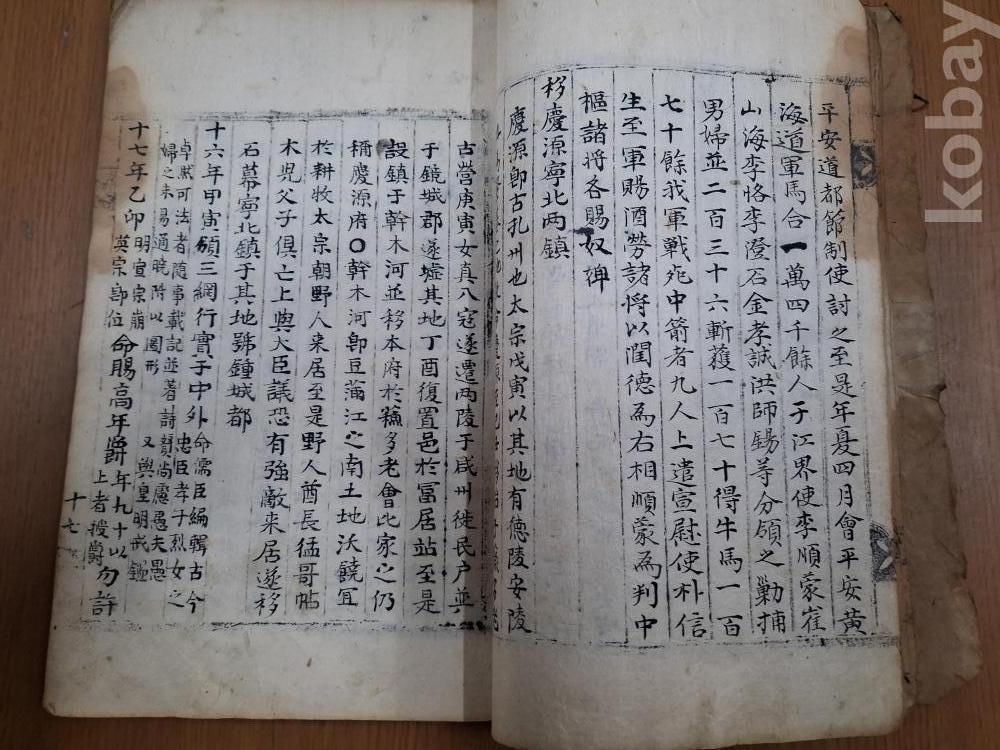 平安道都節制使討之至是年夏四月會平安黃
海道軍馬合一萬四千餘人于江界使李順蒙崔
山海李恪李澄石金孝誠洪師錫等分領之勦捕
男婦並二百三十六斬獲一百七十得牛馬一百
七十餘我軍戰死中箭者九人上遣宣慰使朴信
生至軍賜酒勞諸将以閏德為右相順蒙為判中
樞諸将各賜奴婢
移慶源寧北两鎮
慶源卽古孔州也太宗戊寅以其地有德陵安陵
古营庚寅女真入寇遂遷两陵于咸州徙民户並
于鏡城郡遂墟其地丁酉復置邑於冨居站至是
設鎮于斡木河並移本府於蘓多老會叱家之仍
稱慶源府〇斡木河卽豆滿江之南土地沃饒冝
於耕牧太宗朝野人来居至是野人酋長猛哥帖
木児父子俱亡上與大臣議恐有強敵来居遂移
石幕寧北鎮于其地號鍾城都
十六年甲寅頒三綱行實于中外命儒臣編輯古今
忠臣孝子烈女之
卓然可法者随事載記並著詩賛尚慮愚夫愚
婦之未易通曉附以圖形
十七年乙卯明宣宗崩
英宗卽位
命賜高年爵年九十以
上者授爵
勿許
十七
kobay